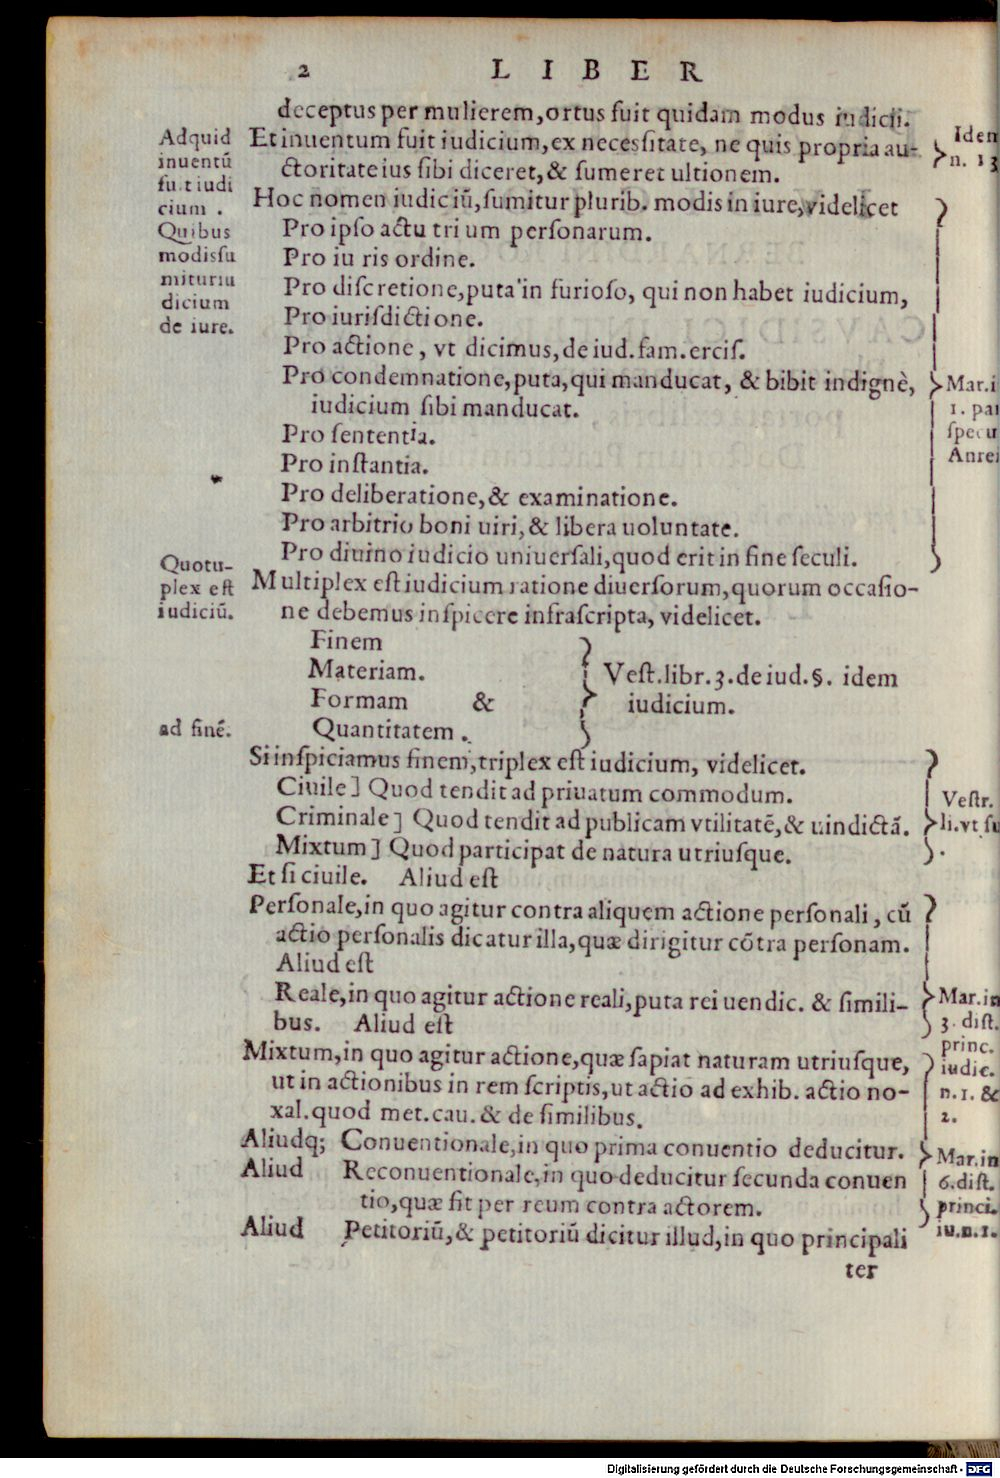 2 LIBER
deceptus per mulierem, ortus fuit quidam modus iudicii.
Adquid
inuentū
fuit iudi
cium .
Et inuentum fuit iudicium, ex necessitate, ne quis propria au-
ctoritate ius sibi diceret, & sumeret ultionem.
Iden
n. 13
Quibus
modis su
mitur iu
dicium
de iure.
Hoc nomen iudiciū, sumitur plurib. modis in iure, videlicet
Pro ipso actu trium personarum.
Pro iuris ordine.
Pro discretione, puta in furioso, qui non habet iudicium,
Pro iurisdictione.
Pro actione, vt dicimus, de iud. fam. ercis.
Pro condemnatione, puta, qui manducat, & bibit indignè,
iudicium sibi manducat.
Pro sententia.
Pro instantia.
Pro deliberatione, & examinatione.
Pro arbitrio boni uiri, & libera uoluntate.
Pro diuino iudicio uniuersali, quod erit in fine seculi.
Mar. i
1. par
specu
Anrei
Quotu-
plex est
iudiciū.
Multiplex est iudicium ratione diuersorum, quorum occasio-
ne debemus inspicere infrascripta, videlicet.
Finem
Materiam.
Formam &
Quantitatem .
Vest. libr. 3. de iud. §. idem
iudicium.
ad finē.
Si inspiciamus finem, triplex est iudicium, videlicet.
Ciuile] Quod tendit ad priuatum commodum.
Criminale] Quod tendit ad publicam vtilitatē, & uindictā.
Mixtum] Quod participat de natura utriusque.
Vestr.
li. vt su
Et si ciuile. Aliud est
Personale, in quo agitur contra aliquem actione personali, cū
actio personalis dicatur illa, quæ dirigitur cōtra personam.
Aliud est
Reale, in quo agitur actione reali, puta rei uendic. & simili-
bus. Aliud est
Mixtum, in quo agitur actione, quæ sapiat naturam utriusque,
ut in actionibus in rem scriptis, ut actio ad exhib. actio no-
xal. quod met. cau. & de similibus.
Mar. in
3. dist.
princ.
iudic.
n. 1. &
2.
Aliudq; Conuentionale, in quo prima conuentio deducitur.
Aliud Reconuentionale, in quo deducitur secunda conuen
tio, quæ fit per reum contra actorem.
Aliud Petitoriū, & petitoriū dicitur illud, in quo principali
ter
Mar. in
6. dist.
princi.
iu. n. 1.
Digitalisierung gefördert durch die Deutsche Forschungsgemeinschaft - DFG